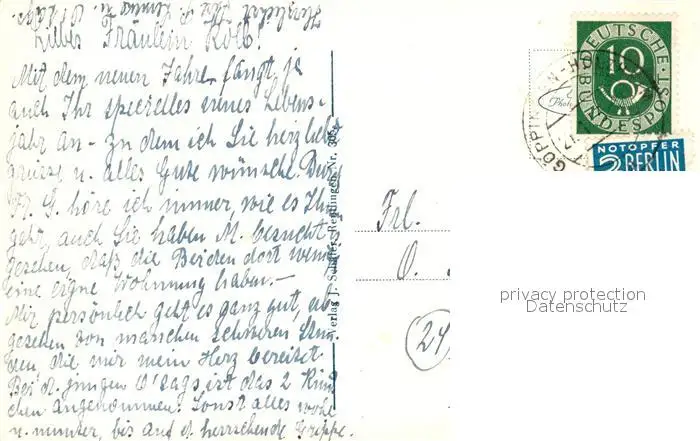 Herzlichst Ihre
Liebes Fräulein Kolb!
Mit dem neuen Jahre fängt ja
auch Ihr spezielles neues Lebens-
jahr an - zu dem ich Sie herzlich
grüsse u. alles Gute wünsche. Durch
Fr. G. höre ich immer, wie es Ihnen
geht, auch Sie haben M. besucht u.
gesehen, daß die Beiden dort wenig
eine eigne Wohnung haben. -
Mir persönlich geht es ganz gut, ab-
gesehen von manchen schweren Stun-
den, die mir mein Herz bereitet.
Bei d. jungen ist das 2 Kind-
chen angekommen. Sonst alles wohl
u. munter, bis auf d. herrschende Grippe.
Verlag J. Schäfer, Reutlingen Nr.
Frl.
O.
(24
DEUTSCHE BUNDESPOST
10
GÖPPINGEN
NOTOPFER
2 BERLIN
Photo
privacy protection
Datenschutz